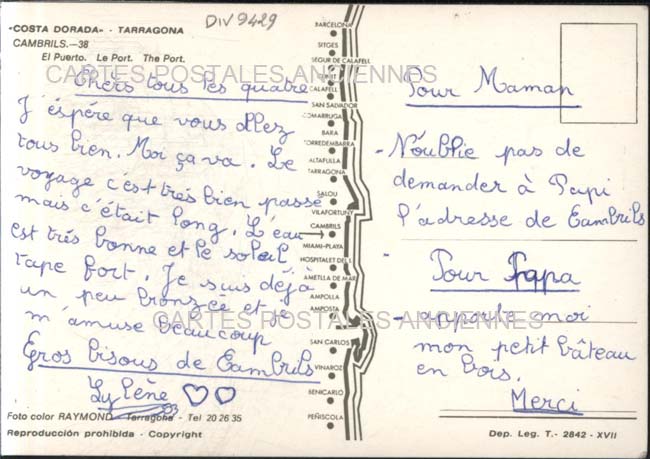 DIV 9429
«COSTA DORADA» - TARRAGONA
CAMBRILS.—38
El Puerto. Le Port. The Port.
CARTES POSTALES ANCIENNES
Chers tous les quatre
J'éspére que vous allez
tous bien. Moi ça va. Le
voyage c'est trés bien passé
mais c'était long. L'eau
est trés bonne et le soleil
tape fort. Je suis déjà
un peu bronzée et je
m'amuse beaucoup
CARTES POSTALES ANCIENNES
Gros bisous de Cambrils
Lylène
Foto color RAYMOND - Tarragona - Tel 20 26 35
Reproducción prohibida - Copyright
BARCELONA
SITGES
SEGUR DE CALAFELL
CALAFELL
SAN SALVADOR
COMARRUGA
BARA
TORREDEMBARRA
ALTAFULLA
TARRAGONA
SALOU
VILAFORTUNY
CAMBRILS
MIAMI-PLAYA
HOSPITALET DEL I.
AMETLLA DE MAR
AMPOLLA
AMPOSTA
SAN CARLOS
VINAROZ
BENICARLO
PEÑISCOLA
Pour Maman
- N'oublie pas de
demander à Papi
l'adresse de Cambrils
Pour Papa
- apporte moi
mon petit bâteau
en bois.
Merci
Dep. Leg. T.- 2842 - XVII